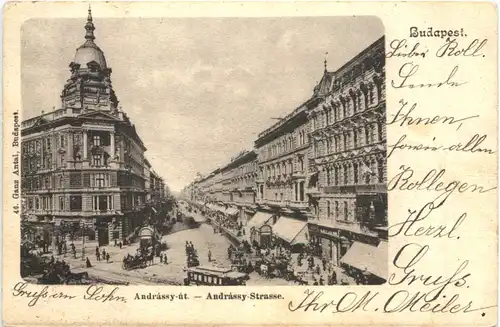 Budapest.
Lieber Koll.
Sende
Ihnen,
sowie allen
Kollegen
Herzl.
Gruß.
Gruß an Sohn,
Ihr M. Meiler.
Andrássy-út. — Andrássy-Strasse.
44. Ganz Antal, Budapest.